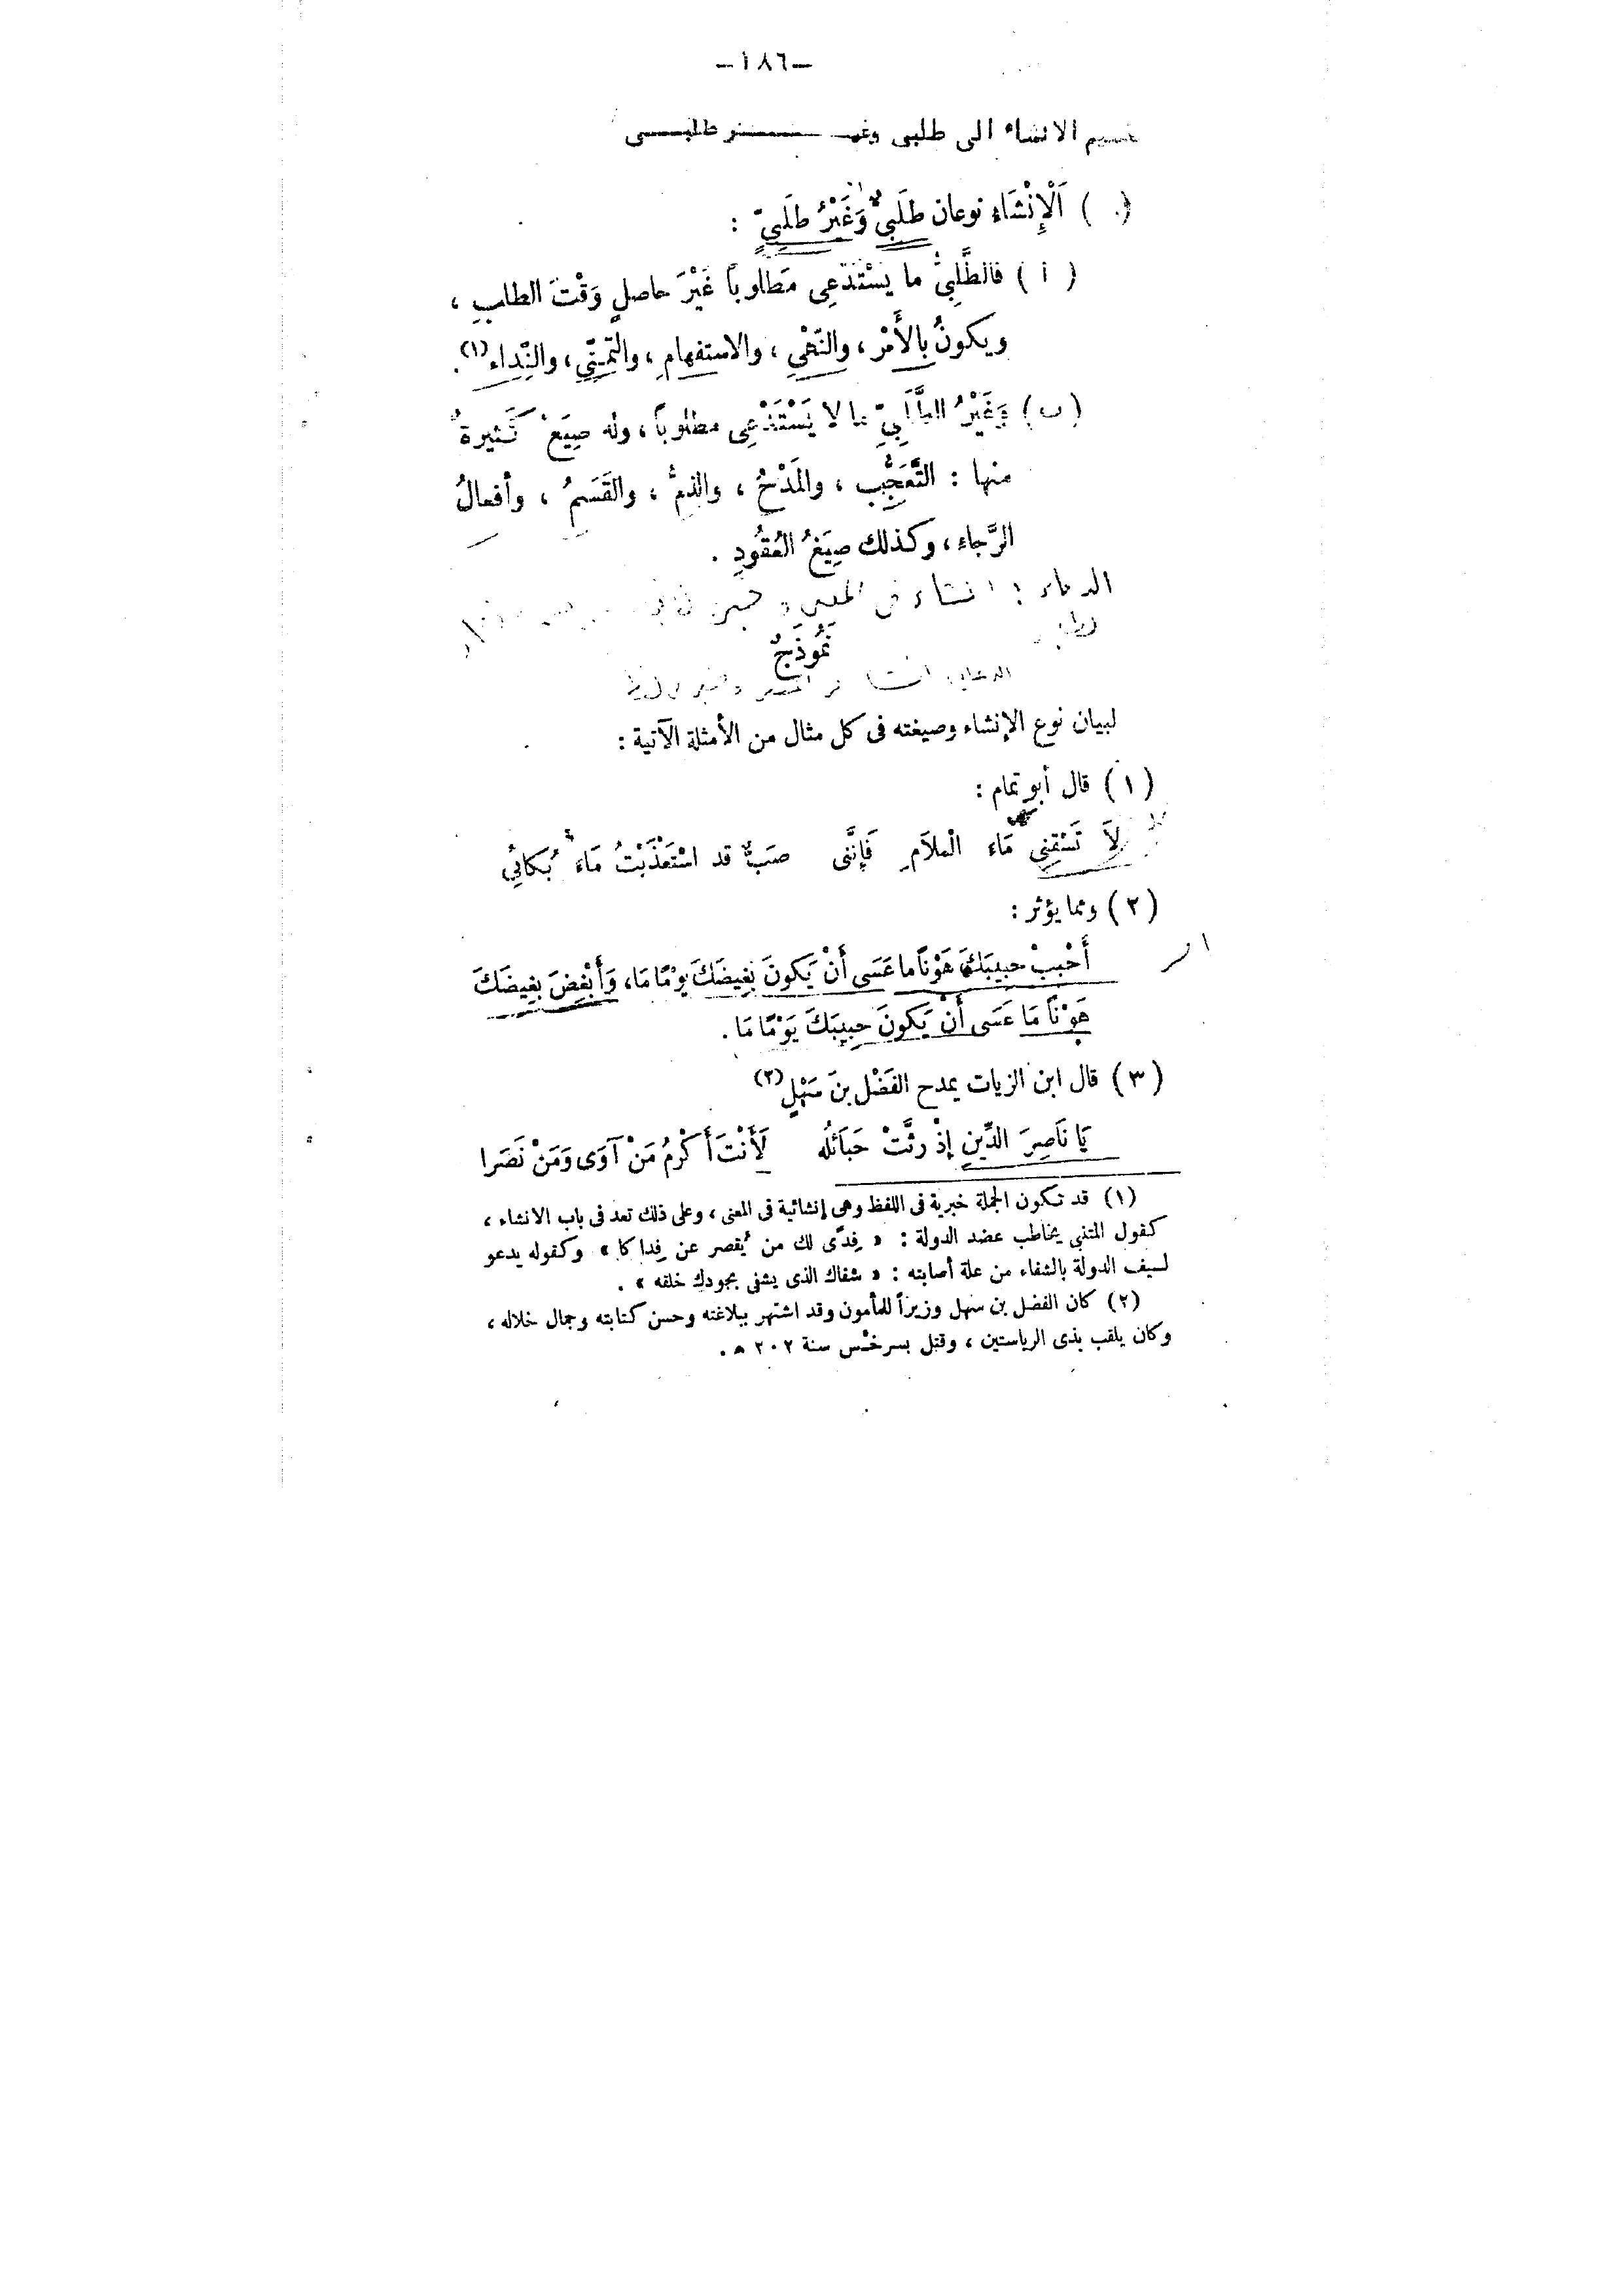 –١٨٦–
الانشاء الى طلبى وغير طلبى
( ) اَلْإِنْشَاءِ نوعان طَلَبِيٌّ وَغَيْرُ طَلَبِيٍّ :
( ا ) فالطَّلَبِيُّ ما يَسْتَدْعِى مَطلوباً غَيْرَ حاصلٍ وَقْتَ الطلبِ ،
ويكونُ بِالأَمْر ، والنَّهْىِ ، والاستفهامِ ، والتَّمنِّى ، والنِّداء (١) .
(ب) وَغَيْرُ الطَّلَبِيِّ ما لا يَسْتَدْعِى مطلوباً ، وله صِيَغٌ كَثيرةٌ
منها : التَّعَجُّب ، والمَدْحُ ، والذمُّ ، والقَسَمُ ، وأفعالُ
الرَّجاءِ ، وكذلك صِيَغُ العُقُودِ .
الدعاء : انشاء فى المعنى و
نَمُوذَجٌ
لبيان نوع الإنشاء وصيغته فى كل مثال من الأمثلة الآتية :
( ١ ) قال أبو تمام :
لاَ تَسْقِنِى مَاءَ الْملاَمِ فَإِنَّنِى صَبٌّ قد اسْتَعْذَبْتُ مَاءَ بُكَائِى
( ٢ ) ومما يؤثر :
أَحْبِبْ حبيبَكَ هَوْنًا ما عَسَى أَنْ يَكونَ بَغِيضَكَ يوْمًا مَا ، وَأَبْغِضْ بَغِيضَكَ
هَوْنًا مَا عَسَى أَنْ يَكونَ حبِيبَكَ يَوْمًا مَا .
( ٣ ) قال ابن الزيات يمدح الفَضْل بنَ سَهْلٍ (٢)
يَا نَاصِرَ الدِّينِ إِذْ رثَّتْ حَبَائلُه لَأَنْتَ أَكْرمُ مَنْ آوَى وَمَنْ نَصَرا
(١) قد تكون الجملة خبرية فى اللفظ وهى إنشائية فى المعنى ، وعلى ذلك تعد فى باب الانشاء ،
كقول المتنبى يخاطب عضد الدولة : « فِدًى لك من يُقصر عن فِداكا » وكقوله يدعو
لسيف الدولة بالشفاء من علة أصابته : « شفاك الذى يشفى بجودك خلقه » .
(٢) كان الفضل بن سهل وزيراً للمأمون وقد اشتهر ببلاغته وحسن كتابته وجمال خلاله ،
وكان يلقب بذى الرياستين ، وقتل بسرخْس سنة ٢٠٢ ه .